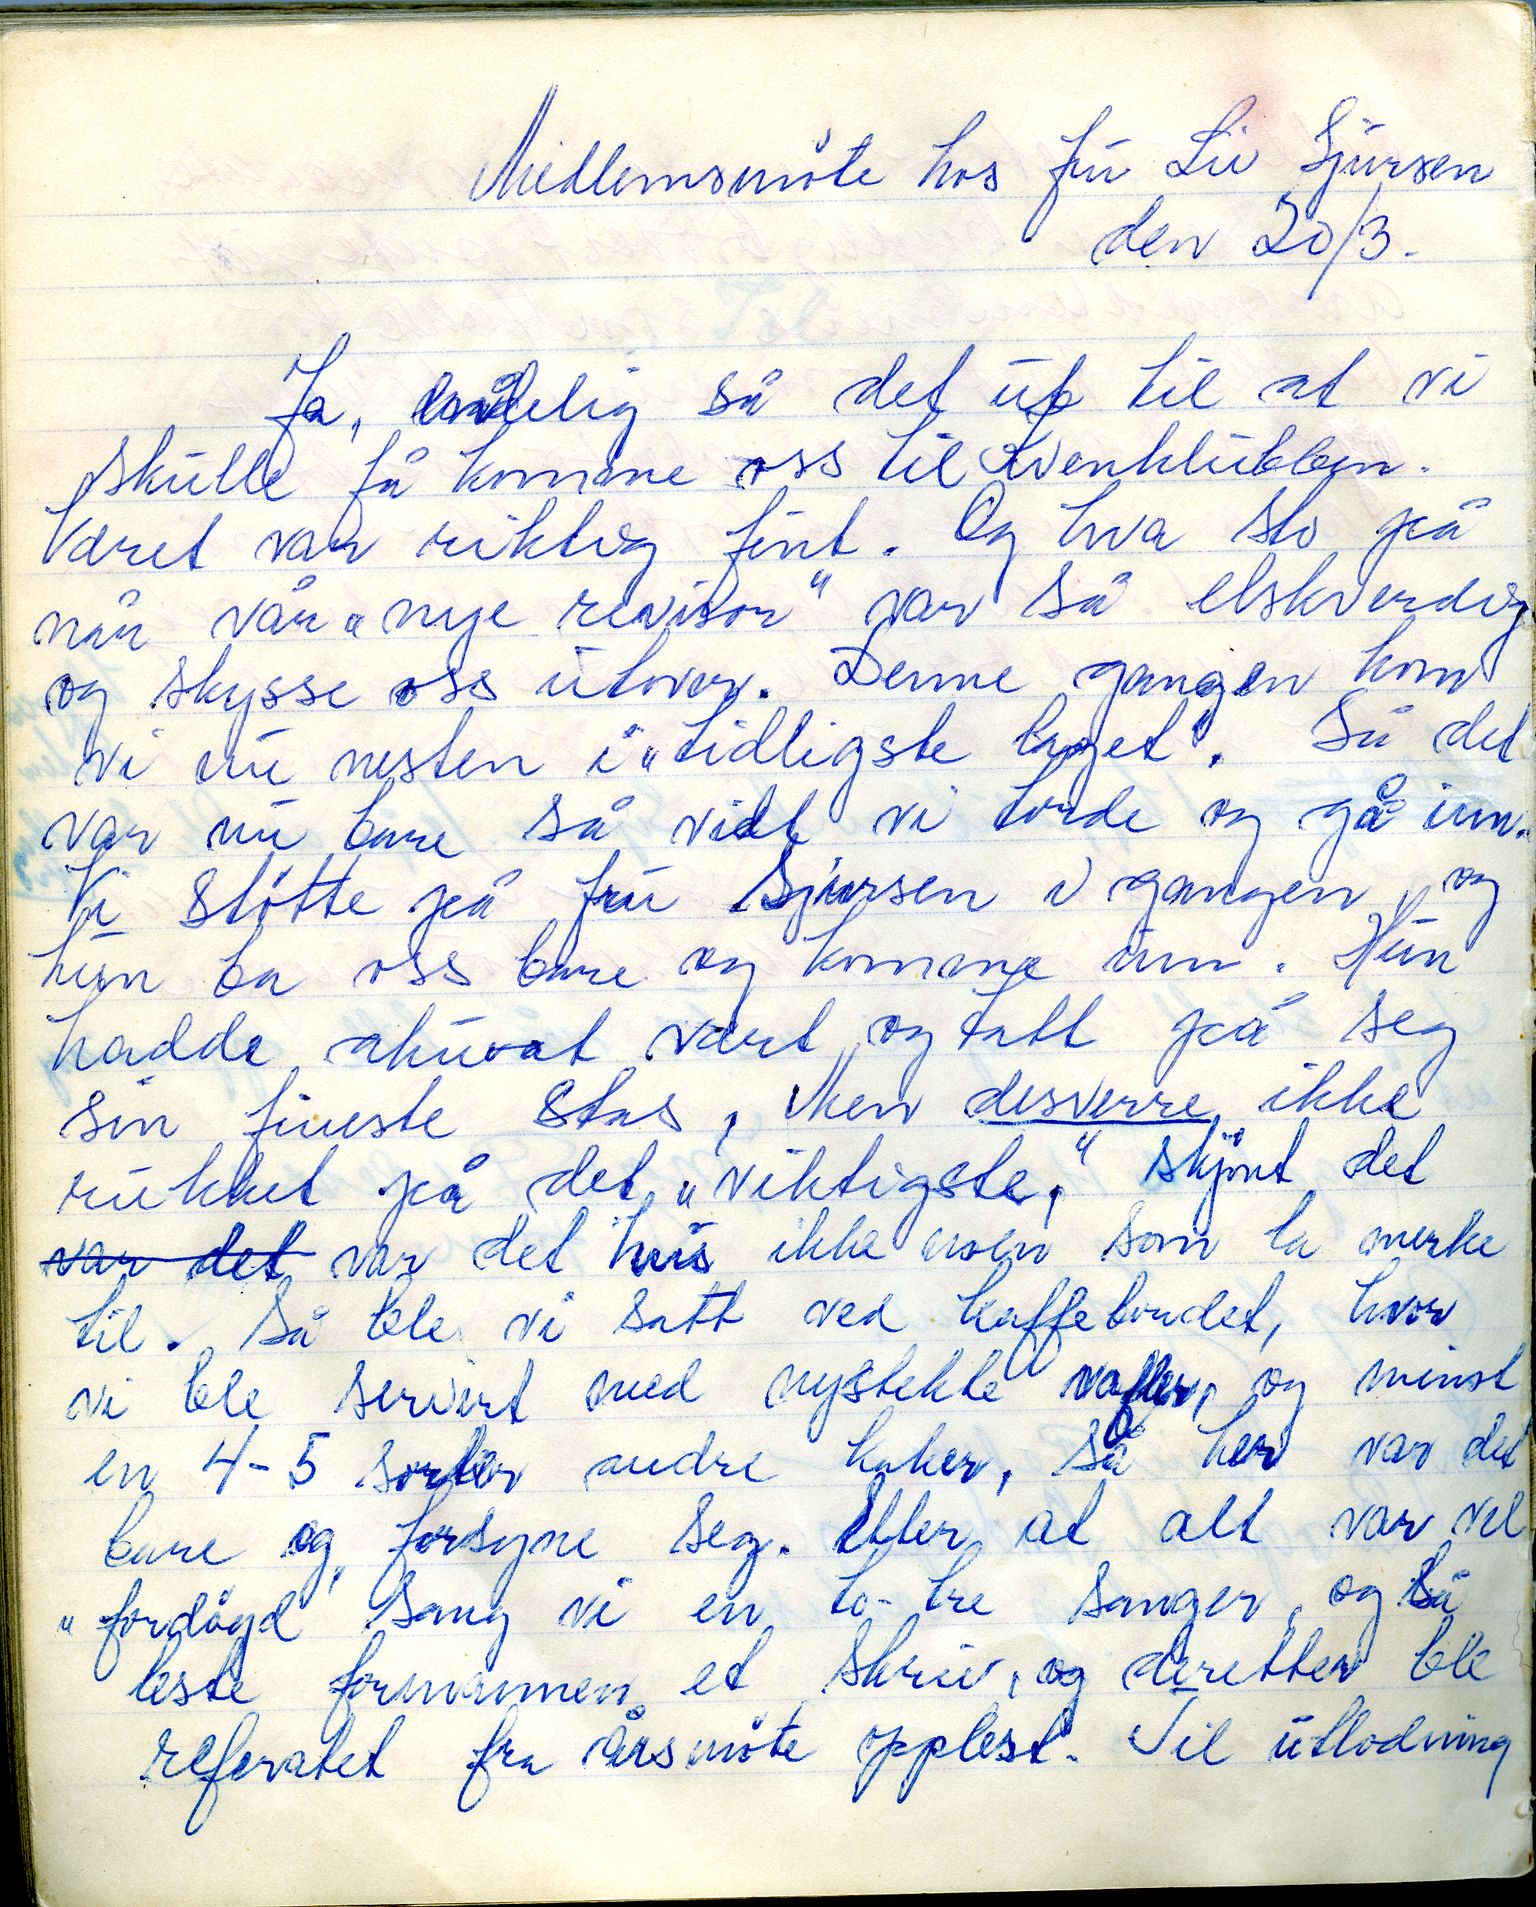 Medlemsmöte hos frú Liv Sjúrsen
den 20/3.
Ja, endelig så det út til at vi
skúlle få komme oss til Kvenklúbben.
Været var riktig fint. Og hva sto på
når vår „nye revisor" var så elskverdig
og skysse oss útover. Denne gangen kom
vi nú nesten i „tidligste laget". Så det
var nú bare så vidt vi torde og gå inn.
Vi stötte på frú Sjúrsen i gangen, og
hún ba oss bare og komme inn. Hún
hadde akúrat vært og tatt på seg
sin fineste stas, Men desverre, ikke
rúkket på det „viktigste," skjönt det
var det var det ikke noen som la merke
til. Så ble vi satt ved kaffebordet, hvor
vi ble servert med nystekte vafler, og minst
en 4-5 sorter andre kaker, så her var det
bare og forsyne seg. Etter at alt var vel
„fordöyd" sang vi en to-tre sanger, og så
leste formannen et skriv, og deretter ble
referatet fra årsmöte opplest. Til útlodning